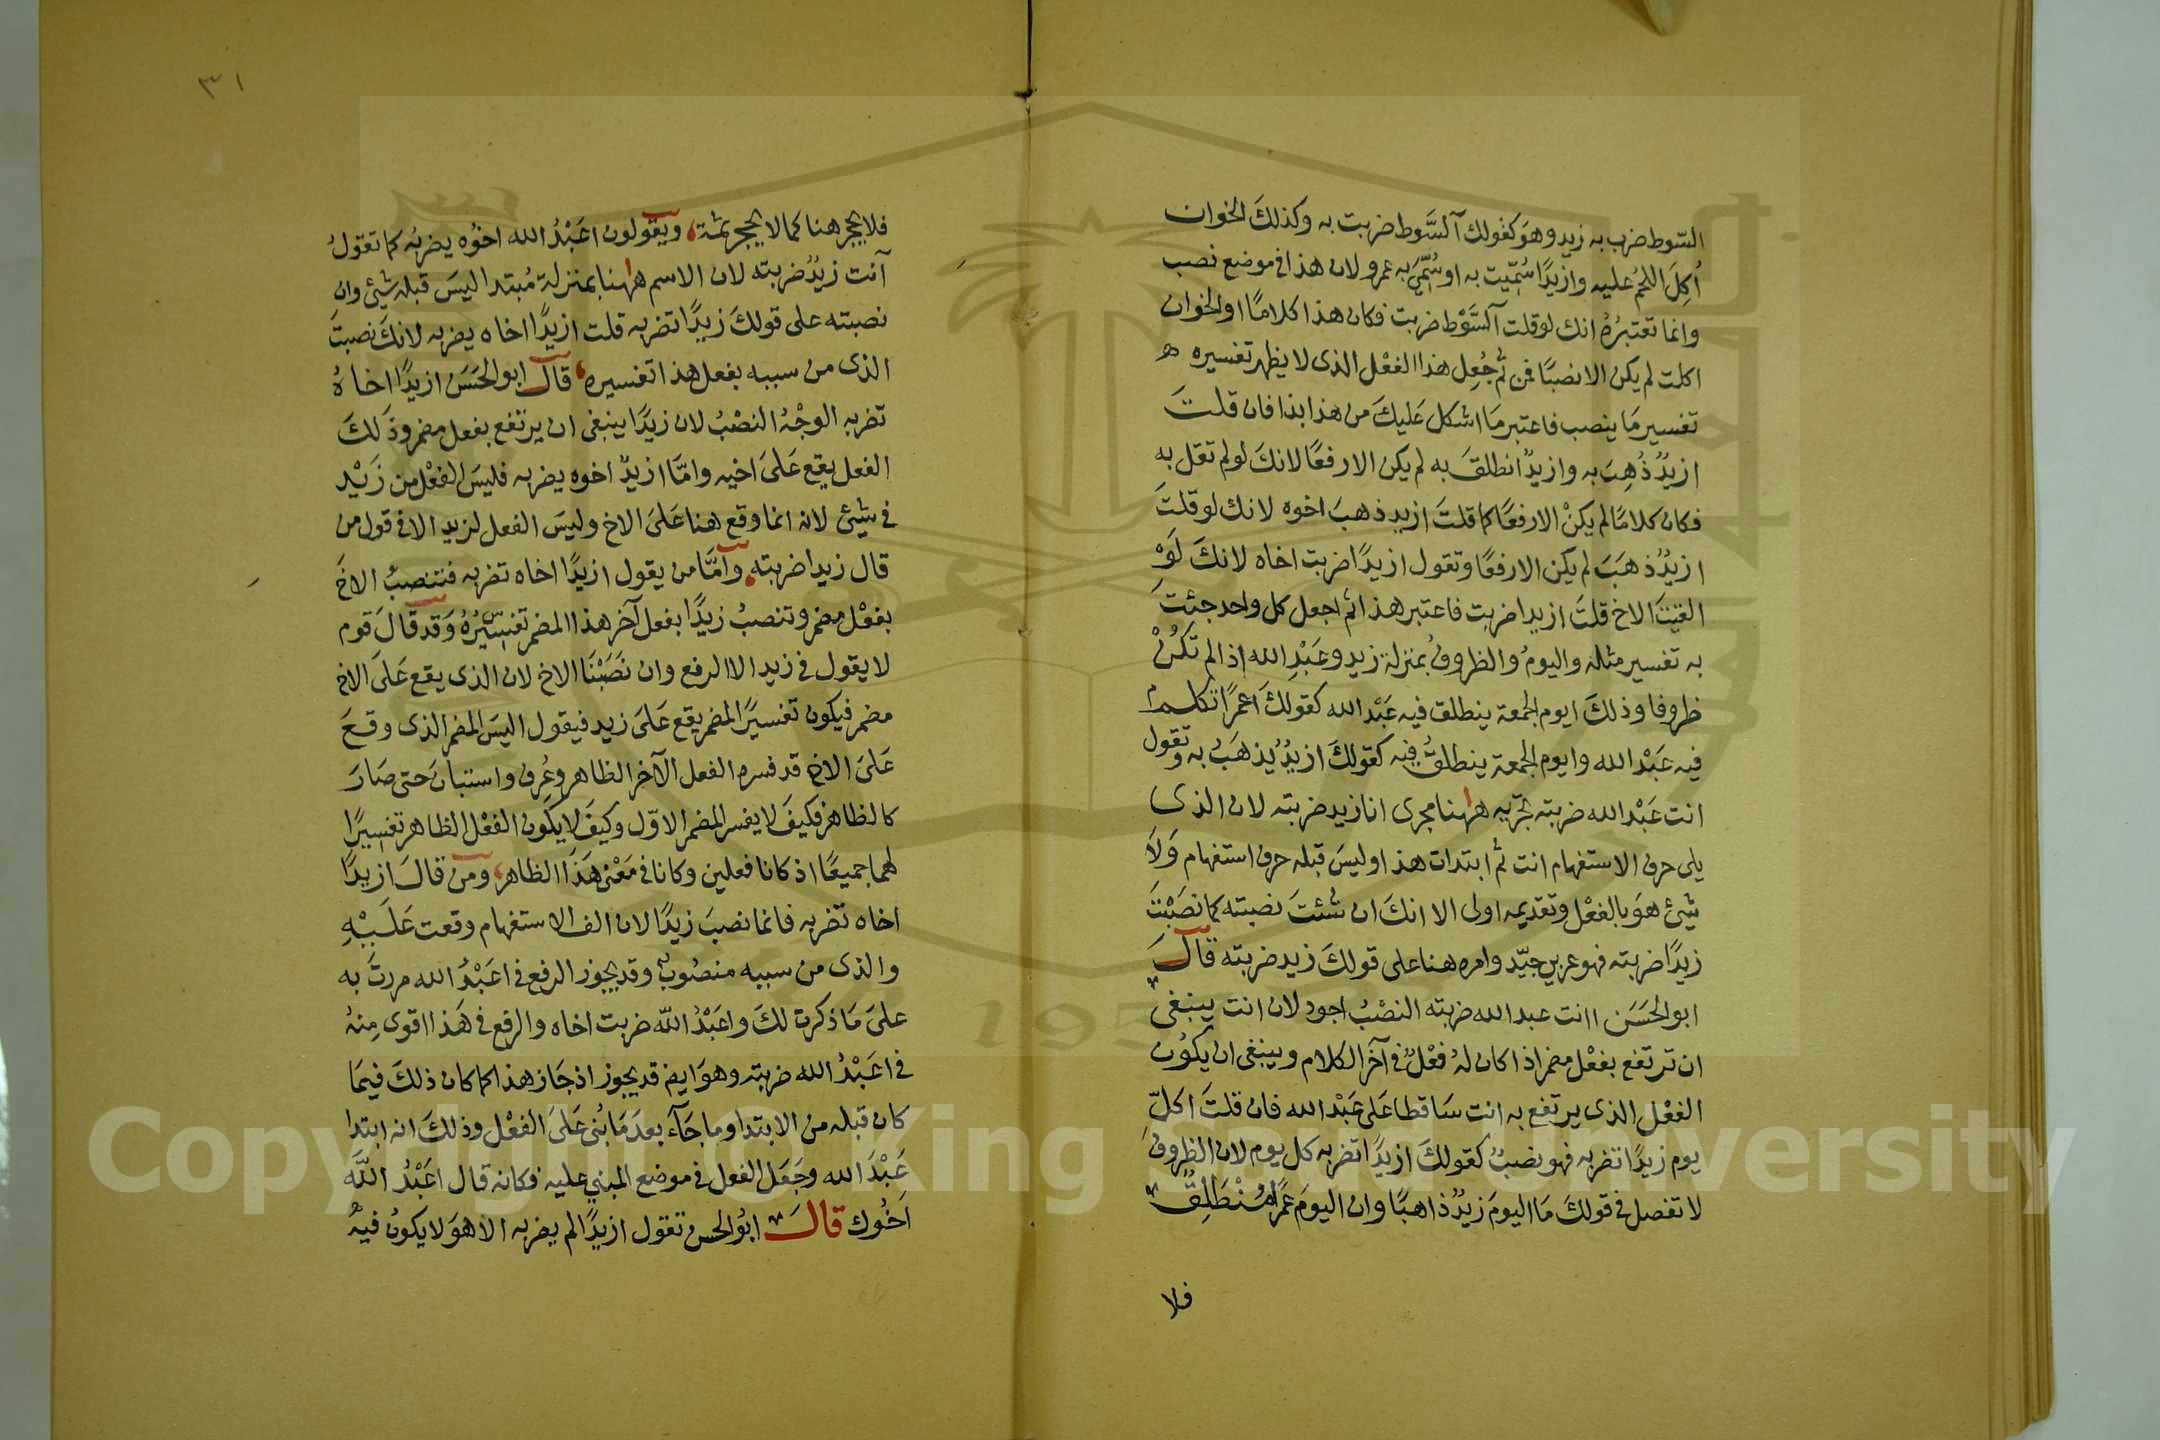 السّوط ضرب به زيد وهوَ كقولك آلسَّوط ضربت به وكذلكَ الخوان
أُكِلَ اللحمُ عليه وازيدًا سُمِّيت به او سُمِّيَ به عمرو لان هذا فى موضع نصب
وانما تعتبرُهُ انك لو قلت آلسَّوْط ضربت فكان هذا كلامًا او الخوان
اكلت لم يكن الا نصبًا فمن ثم جُعِل هذا الفعْل الذى لا يظهر تفسيره
تفسير مَا ينصب فاعتبر مَا اشكل عَليكَ من هذا بذا فان قلتَ
ازيدٌ ذُهِبَ به وازيدٌ انطلقَ به لم يكن الا رفعًا لانكَ لو لم تقل به
فكان كلامًا لم يكنْ الا رفعًا كما قلتَ ازيد ذهبَ اخوه لانك لو قلتَ
ازيدٌ ذهَبَ لم يكن الا رفعًا وتقول ازيدًا ضربت اخاه لانكَ لَوْ
القيتَ الاخ قلتَ ازيدا ضربت فاعتبر هذا ثم اجعل كل واحد جئتَ
به تفسير مثاله واليومُ والظروفُ بمنزلة زيد وعَبْدِ الله اذا لم تكُنْ
ظروفا وذلكَ ايوم الجمعة ينطلق فيه عَبْد الله كقولكَ اعمرًا تكلم
فيه عَبْد الله وايوم الجمعة ينطلقُ فيه كقولكَ ازيدٌ يُذهَبُ به وتقول
انت عَبْد الله ضربته تجريه هاهنا مجرى انا زيد ضربته لان الذى
يلى حرف الاستفهام انت ثم ابتدات هذا وليسَ قبله حرف استفهام وَلاَ
شيئ هوَ بالفعْل وتقديمه اولى الا انكَ ان شئتَ نصبته كما نصَبْتَ
زيدًا ضربته فهو عربي جيّد وامره هنا على قولكَ زيد ضربته قالَ
ابو الحسَن اانت عبد الله ضربته النصْبُ اجود لان انت ينبغى
ان ترتفع بفعْل مضمر اذا كان لهُ فعْلٌ فى آخر الكلام وينبغى ان يكوُن
الفعْل الذى يرتفع به انت سَاقطا عَلى عَبْد الله فان قلتَ اكلّ
يوم زيدًا تضربه فهو نصبٌ كقولكَ ازيدًا تضربه كل يوم لان الظروفَ
لا تفصل فى قولكَ مَا اليومَ زيدٌ ذاهبًا وان اليومَ عَمرًا مُنْطَلِقٌ
فلا
٣١
فلا يحجر هنا كما لا يحجر ثمة ويقولون اعَبْدُ الله اخوُه يضربُه كما تقولُ
آنت زيدٌ ضربته لان الاسم هاهنا بمنزلة مُبتدا ليسَ قبله شيئ وان
نصبته على قولكَ زيدًا تضربه قلت ازيدًا اخاه يضربه لانكَ نصبتَ
الذى من سببه بفعل هذا تفسيره قالَ ابو الحَسَن ازيدًا اخاهُ
تضربه الوجْهُ النصْبُ لان زيدًا ينبغى ان يرتفع بفعل مضمر وذَلكَ
الفعل يقع عَلىَ اخيه وامّا ازيدٌ اخوه يضربه فليسَ الفعْل من زَيْد
فى شيئ لانه انما وقع هنا عَلىَ الاخ وليسَ الفعل لزيد الا فى قول من
قال زيدا ضربته وامَّا من يقول ازيدًا اخاه تضربه فتنصبُ الاخَ
بفعْل مضمر وتنصبُ زيدًا بفعل آخر هذا المضمر تفسِيرُهُ وَقد قَالَ قوم
لا يقول فى زيد الا الرفع وان نَصَبْنَا الاخ لان الذى يقع عَلَى الاخ
مضمر فيكون تفسيرًا لمضمر يقع عَلىَ زيد فيقول اليسَ المضمر الذى وقعَ
عَلىَ الاخ قد فسره الفعل الآخر الظاهر وعُرف واستبانَ حتى صَارَ
كالظاهر فكيفَ لا يفسر المضمر الاوّل وكيفَ لا يكون الفعْل الظاهر تفسِيرًا
لهما جميعًا اذ كانا فعلين وكانا فى مَعْنى هَذَا الظاهر ومن قالَ ازيدًا
اخاه تضربه فانما نصبَ زيدًا لان الف الاستفهام وقعت عَلَيْهِ
والذى من سببه منصُوبٌ وقد يجوز الرفع فى اعَبْدُ الله مررتَ به
علىَ مَا ذكرت لكَ واعَبْدُ اللّه ضربت اخاه والرفع فى هَذا اقوى مِنهُ
فى اعَبْدُ الله ضربته وهوَ ايضـ قد يجوز اذ جَاز هذا كما كان ذلكَ فيمَا
كان قبله من الابتدا وما جَآءَ بعدَ مَا بُنى عَلىَ الفعْل وذلكَ انه ابتدا
عَبْدَ الله وجَعَل الفعل فى موضع المبني عليه فكانه قال اعَبْدُ اللَّه
اَخُوك قالَ ابُو الحسن تقول ازيدًا لم يضربه الا هوَ لا يكونُ فيهِ
Copyright © King Saud University